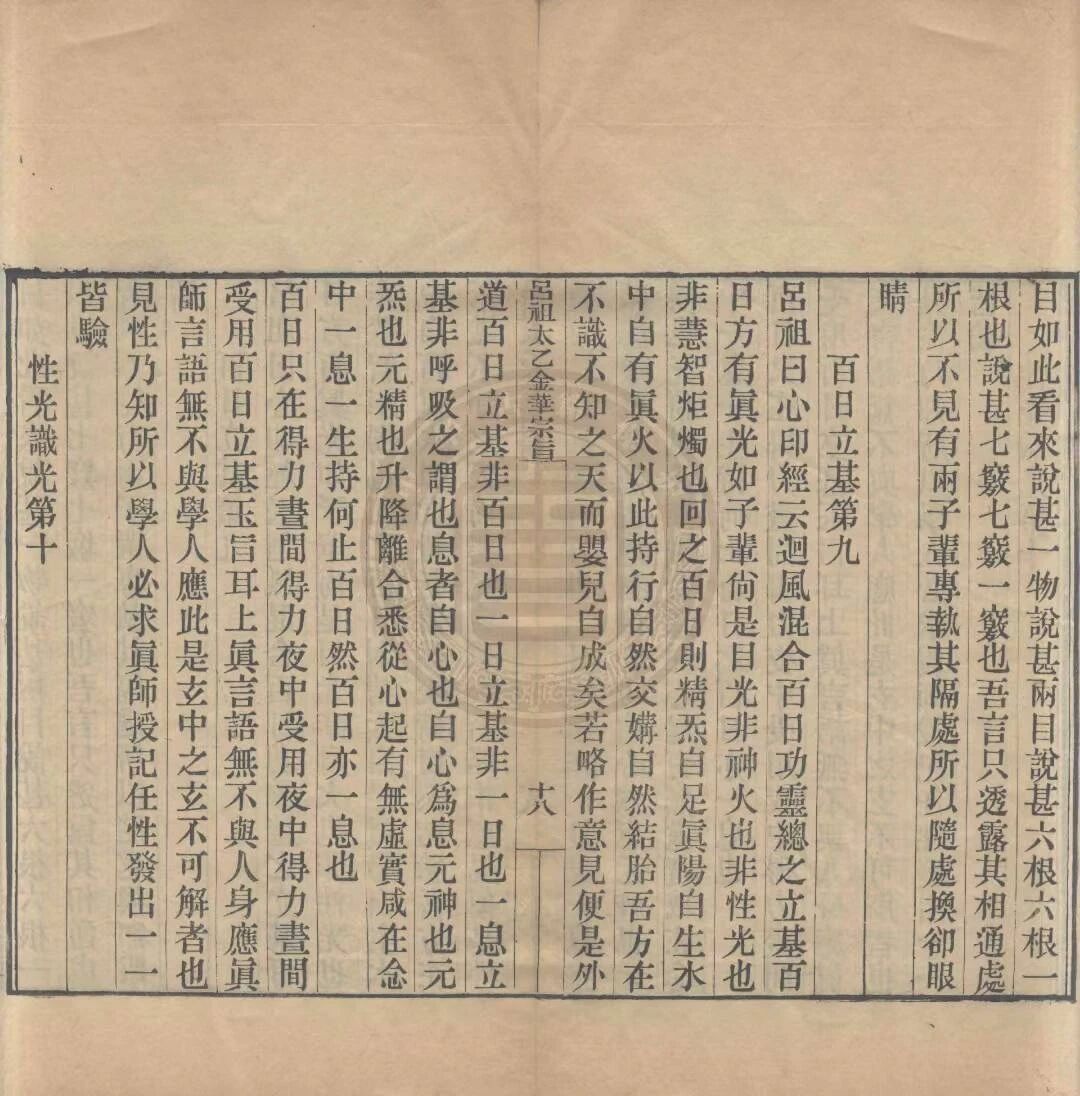 目如此看來說甚一物說甚兩目說甚六根六根一
根也說甚七竅七竅一竅也吾言只透露其相通處
所以不見有兩子輩專執其隔處所以隨處換卻眼
睛
百日立基第九
呂祖曰心印經云迴風混合百日功靈總之立基百
日方有眞光如子輩尙是目光非神火也非性光也
非慧智炬燭也回之百日則精炁自足眞陽自生水
中自有眞火以此持行自然交媾自然結胎吾方在
不識不知之天而嬰兒自成矣若略作意見便是外
呂祖太乙金華宗旨
十八
道百日立基非百日也一日立基非一日也一息立
基非呼吸之謂也息者自心也自心爲息元神也元
炁也元精也升降離合悉從心起有無虛實咸在念
中一息一生持何止百日然百日亦一息也
百日只在得力晝間得力夜中受用夜中得力晝間
受用百日立基玉旨耳上眞言語無不與人身應眞
師言語無不與學人應此是玄中之玄不可解者也
見性乃知所以學人必求眞師授記任性發出一一
皆驗
性光識光第十